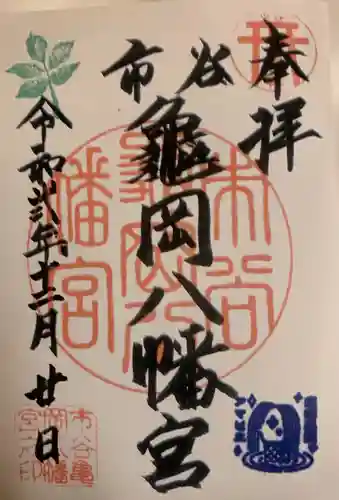 奉拝
市ヶ谷
亀岡八幡宮
令和弐年十二月廿日
市谷
亀岡八
幡宮
市谷亀
岡八幡
宮之印